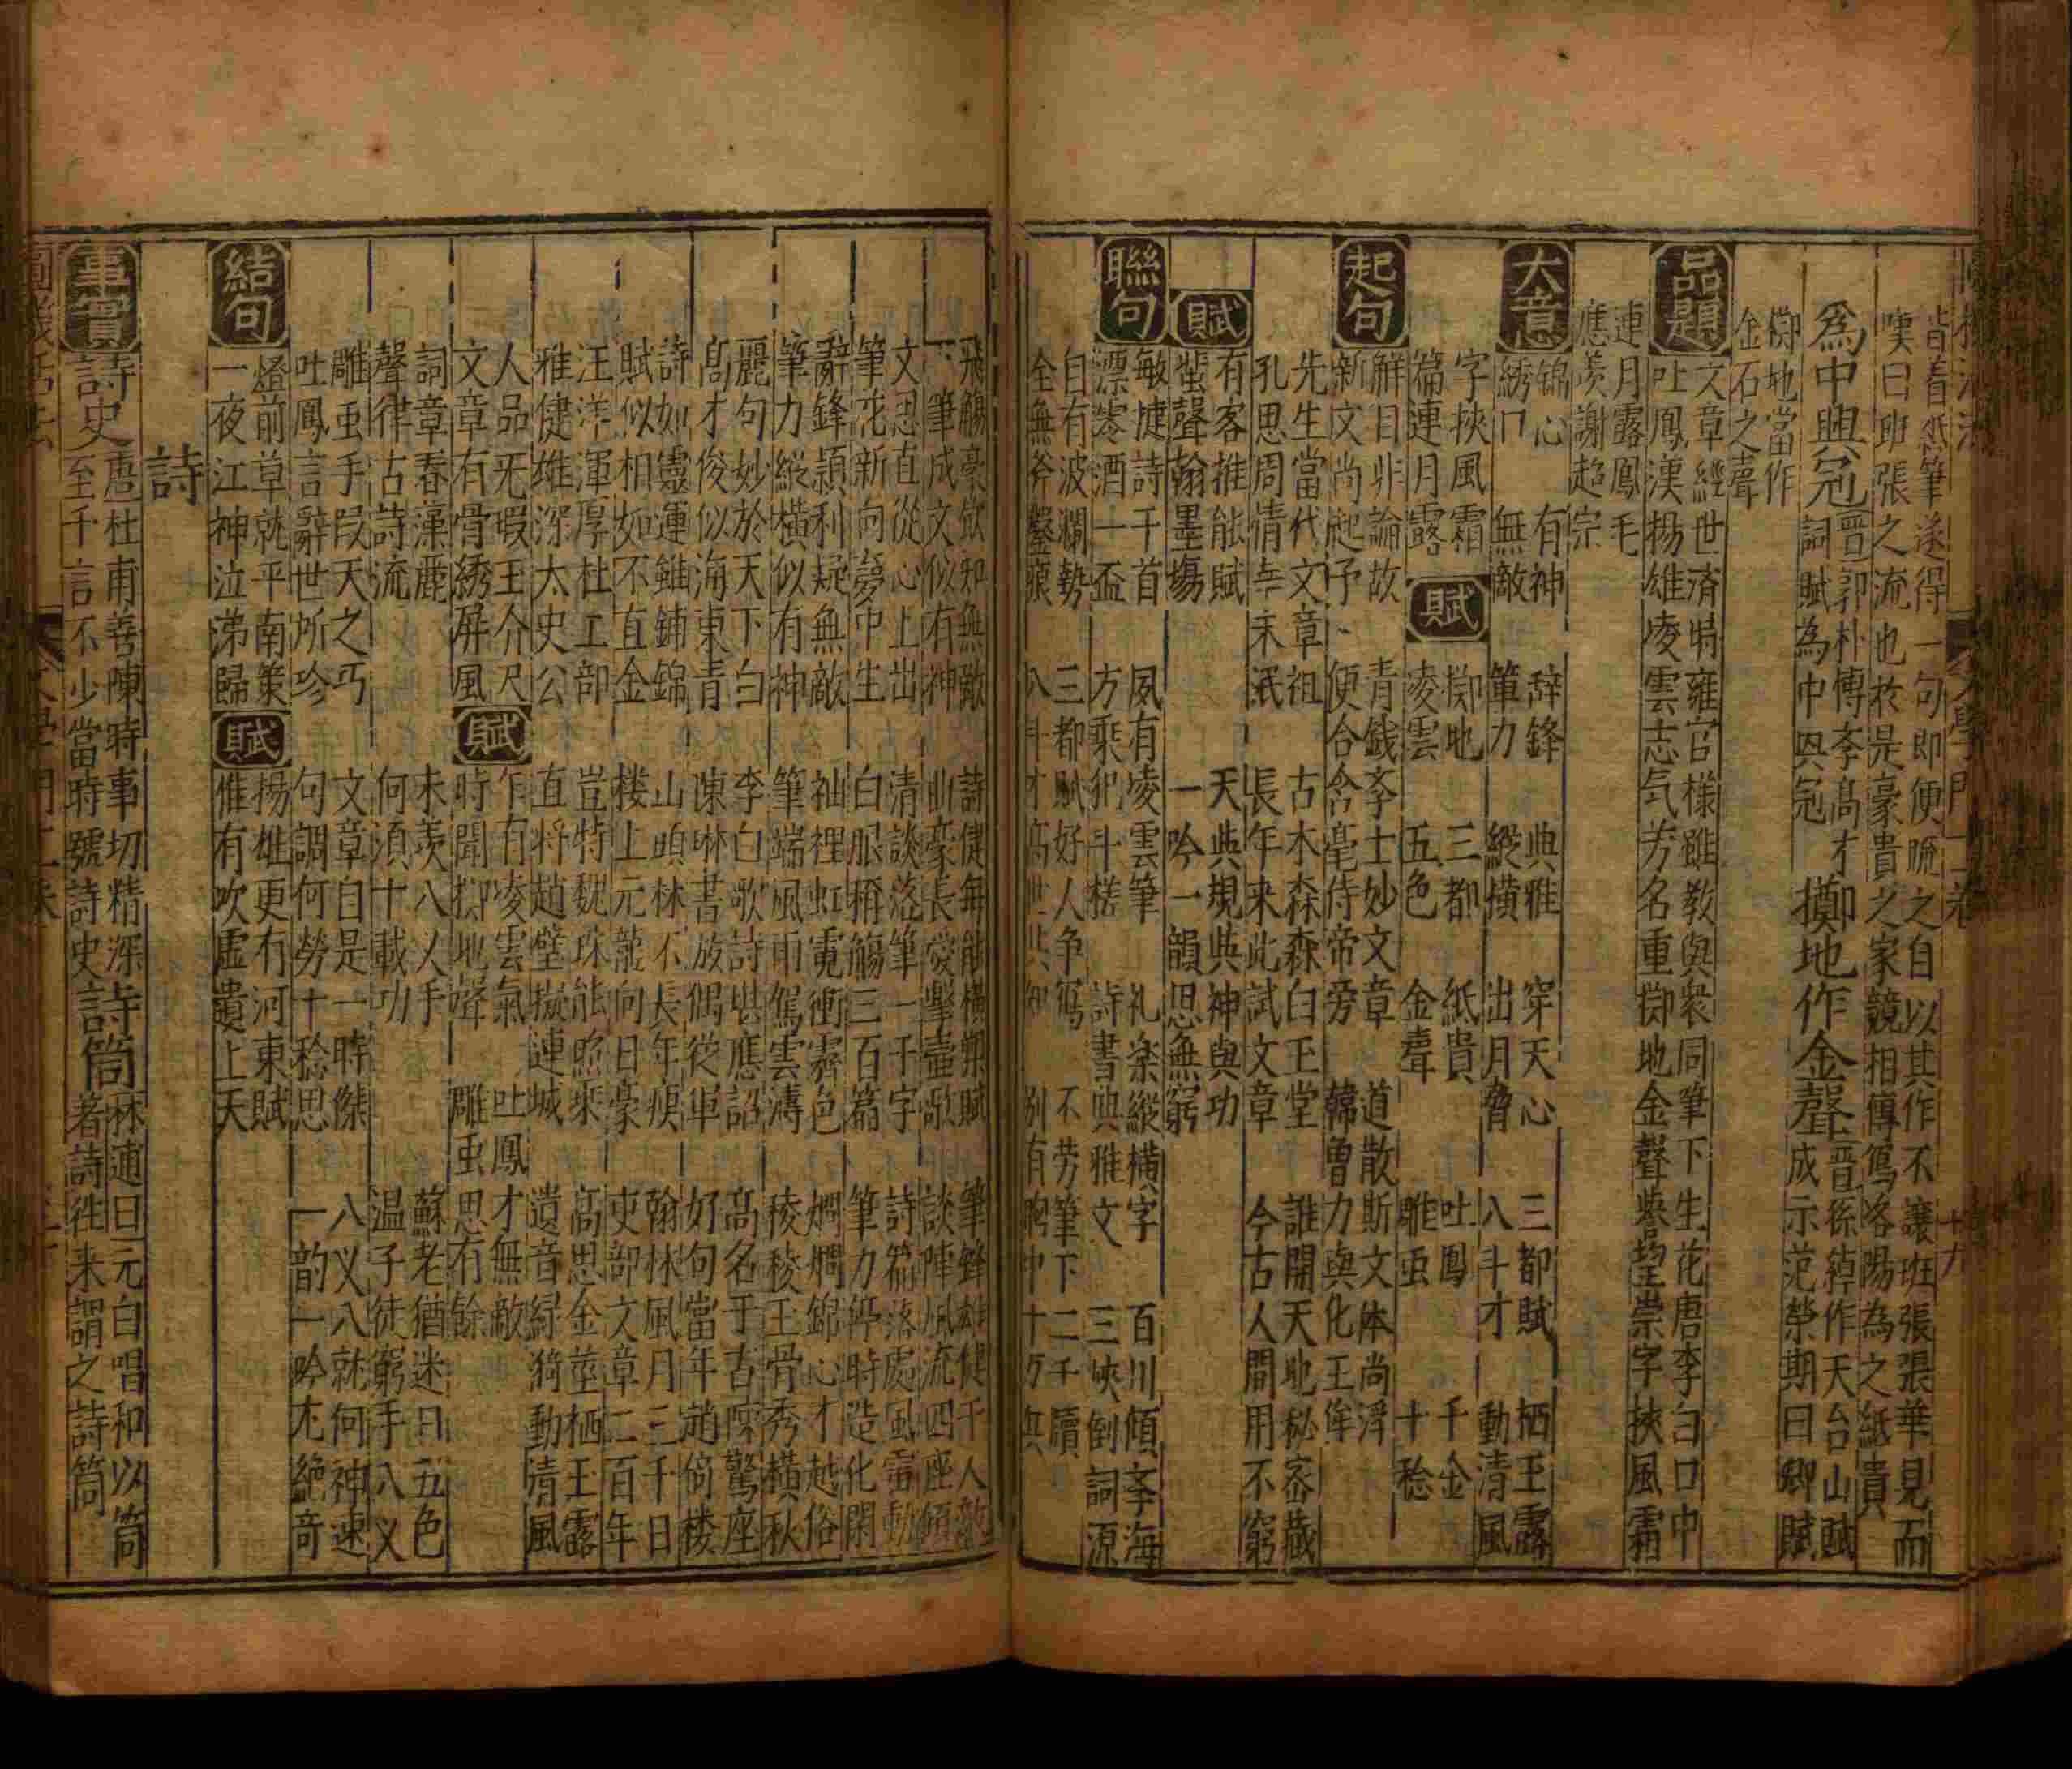 皆着紙筆遂得一句即便䟽之自以其作不讓班張張華見而
嘆曰班張之流也於是豪貴之家競相傳寫咯陽為之紙貴
為中興冠
晋郭朴博李高才
詞賦為中興冠
擲地作金聲
晋孫綽作天台山賦
成示范榮期曰卿賦
擲地當作
金石之聲
品題
文章經世済時雍容様雖教與衆同筆下生花唐李白口中
吐鳳漢揚雄凌雲志气芳名重擲地金聲譽望崇字挾風霜
連月露鳳毛
應羡謝超宗
大意
錦心 有神 辞鋒 典雅 穿天心 三都賦 栖玉露
綉口 無敵 筆力 縱横 出月脅 八斗才 動清風
字挾風霜
篇連月露
賦
擲地 三都 紙貴 吐鳳 千金
凌雲 五色 金聲 雕虫 十稔
起句
解目非論故 青銭李士妙文章 道散斯文体尚浮
新文尚起予 便合含毫侍帝旁 韓曽力與化王侔
先生當代文章祖 古木森森白玉堂 誰開天地秘宻藏
孔思周情幸未泯 長年来此試文章 今古人間用不窮
賦
有客推能賦 天與規與神與功
蜚聲翰墨塲 一吟一韻思無窮
聯句
敏㨗詩千首 夙有凌雲筆 礼楽縱横字 百川傾李海
漂零酒一盃 方乘犯斗槎 詩書典雅文 三峡倒詞源
自有波瀾勢 三都賦好人争寫 不劳筆下二千牘
全無斧鑿痕 八斗才高世共知 別有胸中十万兵
飛觴豪飲知無敵 詩健毎能横槊賦 筆鋒雄健千人敵
下筆成文似有神 曲豪長愛擊壺歌 談陣風流四座傾
文思直從心上出 清談落筆一千字 詩篇落處風雷動
筆花新向夢中生 白眼稱觴三百篇 筆力停時造化閑
辭鋒頴利疑無敵 袖裡虹霓衝霽色 爛爛錦心才越俗
筆力縱横似有神 筆端風雨駕雲濤 稜稜玉骨秀横秋
麗句妙於天下白 李白歌詩堪應詔 高名于古陳驚座
高才俊似海東青 陳琳書放偶從軍 好句當年趙倚楼
詩如靈運雖鋪錦 山頭林不長年痩 翰林風月三千日
賦似相如不直金 楼上元龍向日豪 吏部文章二百年
汪洋渾厚杜工部 豈特魏珠能照乘 高思金莖栖玉露
雅健雄深太史公 直将趙璧擬連城 遺音緑猗動清風
人品旡瑕玉介尺
文章有骨綉屏風
賦
乍有凌雲氣 吐鳳才無敵
時聞擲地聲 雕虫思有餘
詞章春藻麗 未羨八乂手 蘇老猶迷日五色
聲律古詩流 何須十載功 温子徒窮手八乂
雕虫手叚天之丐 文章自是一時傑 八乂八就何神速
吐鳳言辭世所珍 句調何勞十稔思 一韵一吟尤絶奇
結句
燈前草就平南策
一夜江神泣涕歸
賦
揚雄更有河東賦
惟有吹嘘遺上天
詩
事實
詩史
唐杜甫善陳時事切精深
至千言不少當時號詩史
詩筒
林逋曰元白唱和以筒
著詩徃来謂之詩筒